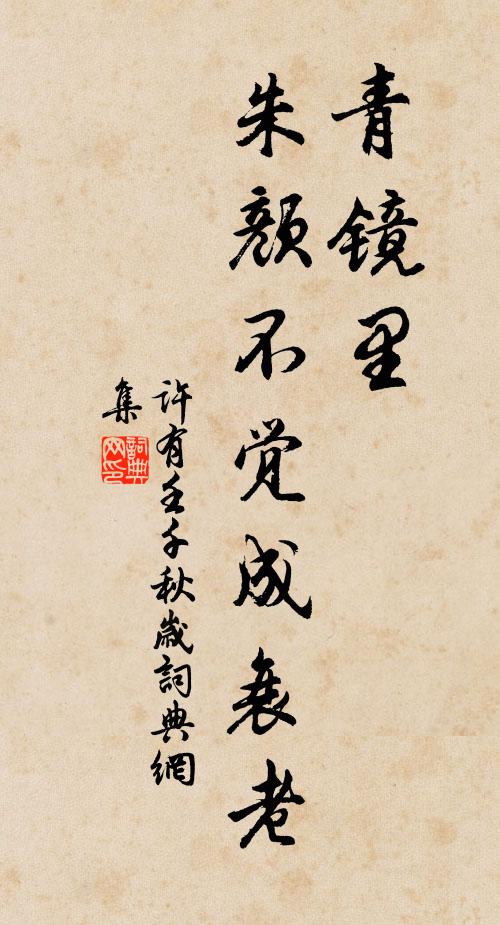 青镜里
朱颜不觉成衰老
許有壬千秋歲詞典網
集
詞典
网印